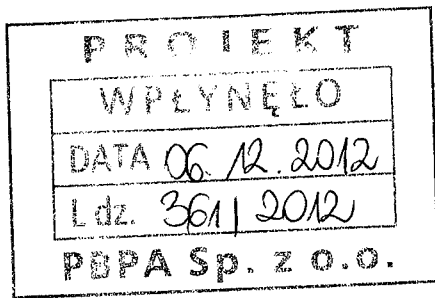 PROJEKT
WPŁYNĘŁO
DATA 06.12.2012
L dz. 361/2012
PBPA Sp. z o.o.